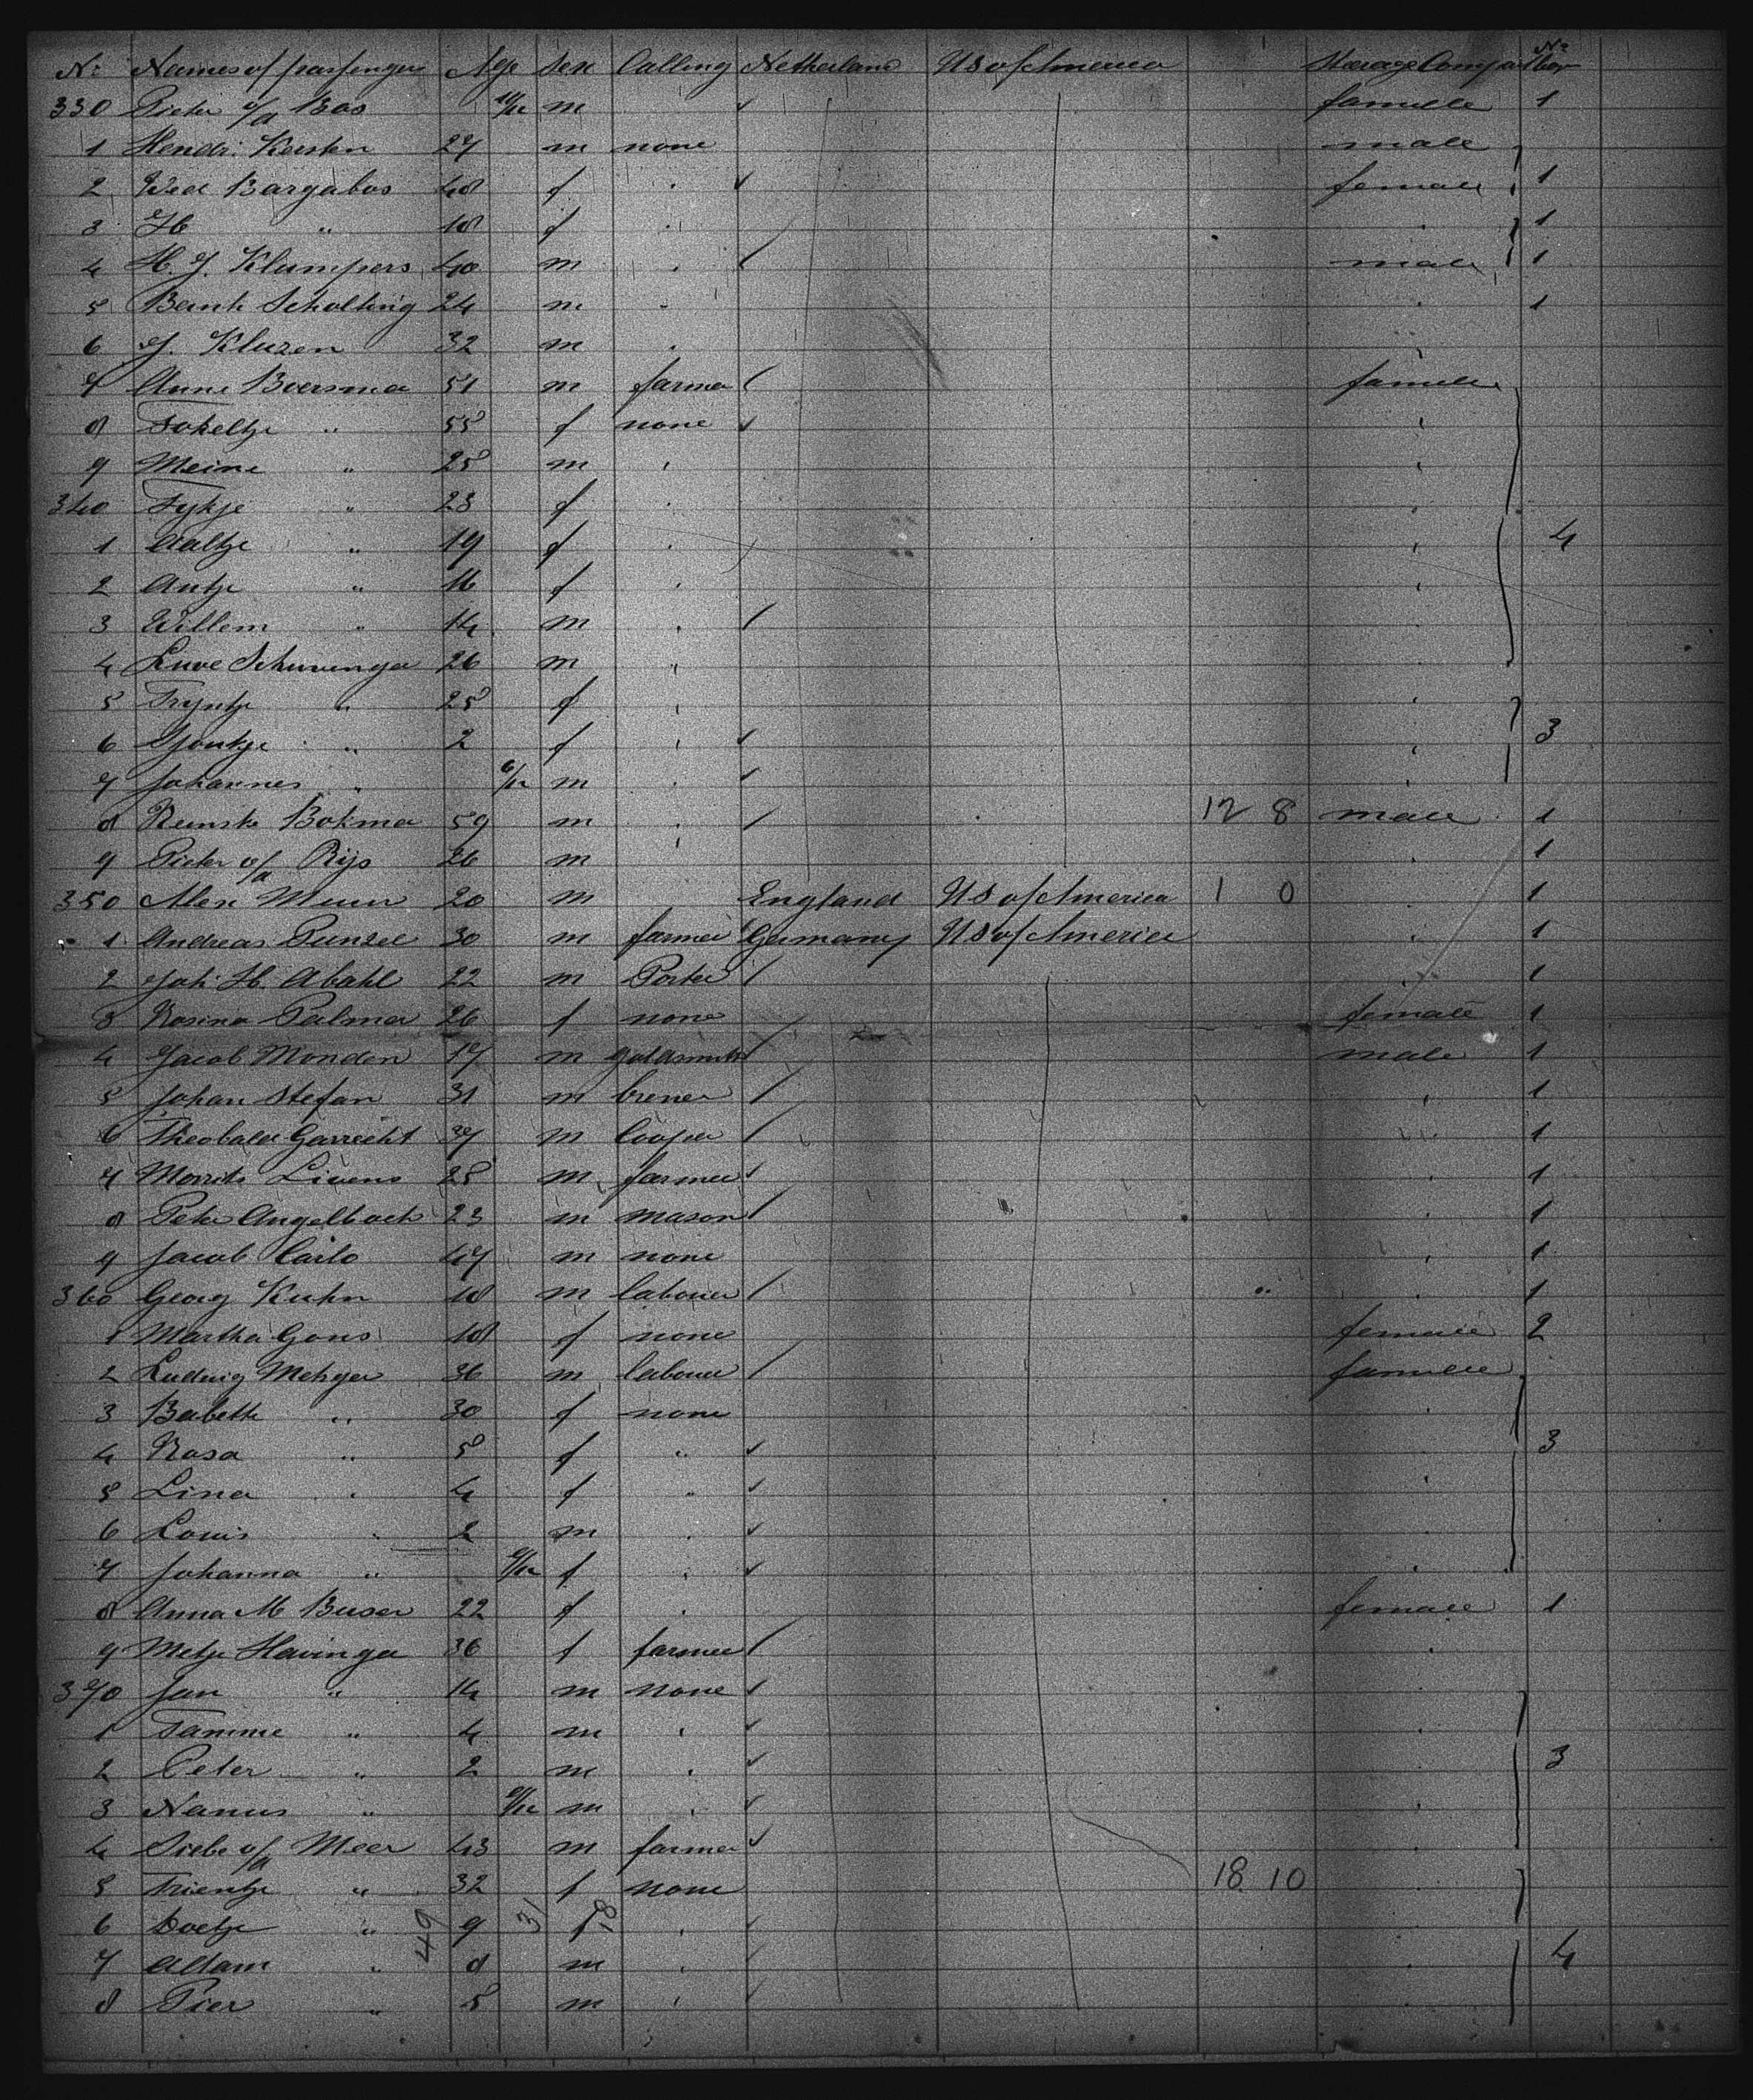 No Names of passenger Age Sex Calling Netherland US of America Steerage Compart No
330 Pieter v/d Bos 11/12 m " familie 1
1 Hendr. Kersten 27 m none male
2 Wed Bargabos 48 f " female 1
3 H " 18 f " " 1
4 H. J. Klumpers 40 m " male 1
5 Bernh Scholting 24 m " " 1
6 J. Kluzen 32 m " "
7 Anne Boersma 51 m farmer familie
8 Fokeltje " 55 f none "
9 Meine " 25 m " "
340 Fykje " 23 f " "
1 Aaltje " 19 f " " 4
2 Antje " 16 f " "
3 Willem " 14 m " "
4 Luve Schuringa 26 m " "
5 Tryntje " 25 f " "
6 " 2 f " " 3
7 Johannes " 6/12 m " "
8 Reinsk Bokma 59 m " 12 8 male 1
9 Pieter v/d Rijs 26 m " " 1
350 Alex Munn 20 m England US of America 1 0 " 1
1 Andreas Punzel 30 m farmer Germany US of America " 1
2 Joh. H. Abahl 22 m Porter " 1
3 Rosina Palmer 26 f none female 1
4 Jacob Monden 17 m goldsmith male 1
5 Johan Stefan 31 m brewer " 1
6 Theobald Garrecht 37 m Cooper " 1
7 Morritz Livens 25 m farmer " 1
8 Peter Angelbach 23 m mason " 1
9 Jacob Carlo 47 m none " 1
360 Georg Kuhn 18 m labourer " 1
1 Martha Gons 18 f none female 2
2 Ludwig Metzger 36 m labourer familie
3 Babette " 30 f none "
4 Rosa " 5 f " 3
5 Lina " 4 f " "
6 Louis " 2 m " "
7 Johanna " /12 f " "
8 Anna M Buser 22 f " female 1
9 Metje Havinga 36 f farmer "
370 Jan " 14 m none "
1 Tamme " 4 m " "
2 Peter " 2 m " 3
3 Nanus " /12 m " "
4 Siebe v/d Meer 43 m farmer "
5 Trientje " 32 f none 18 10 "
6 Doetje " 49 9 31 f 18 " "
7 Adam " 8 m " " 4
8 Pier " 5 m " "